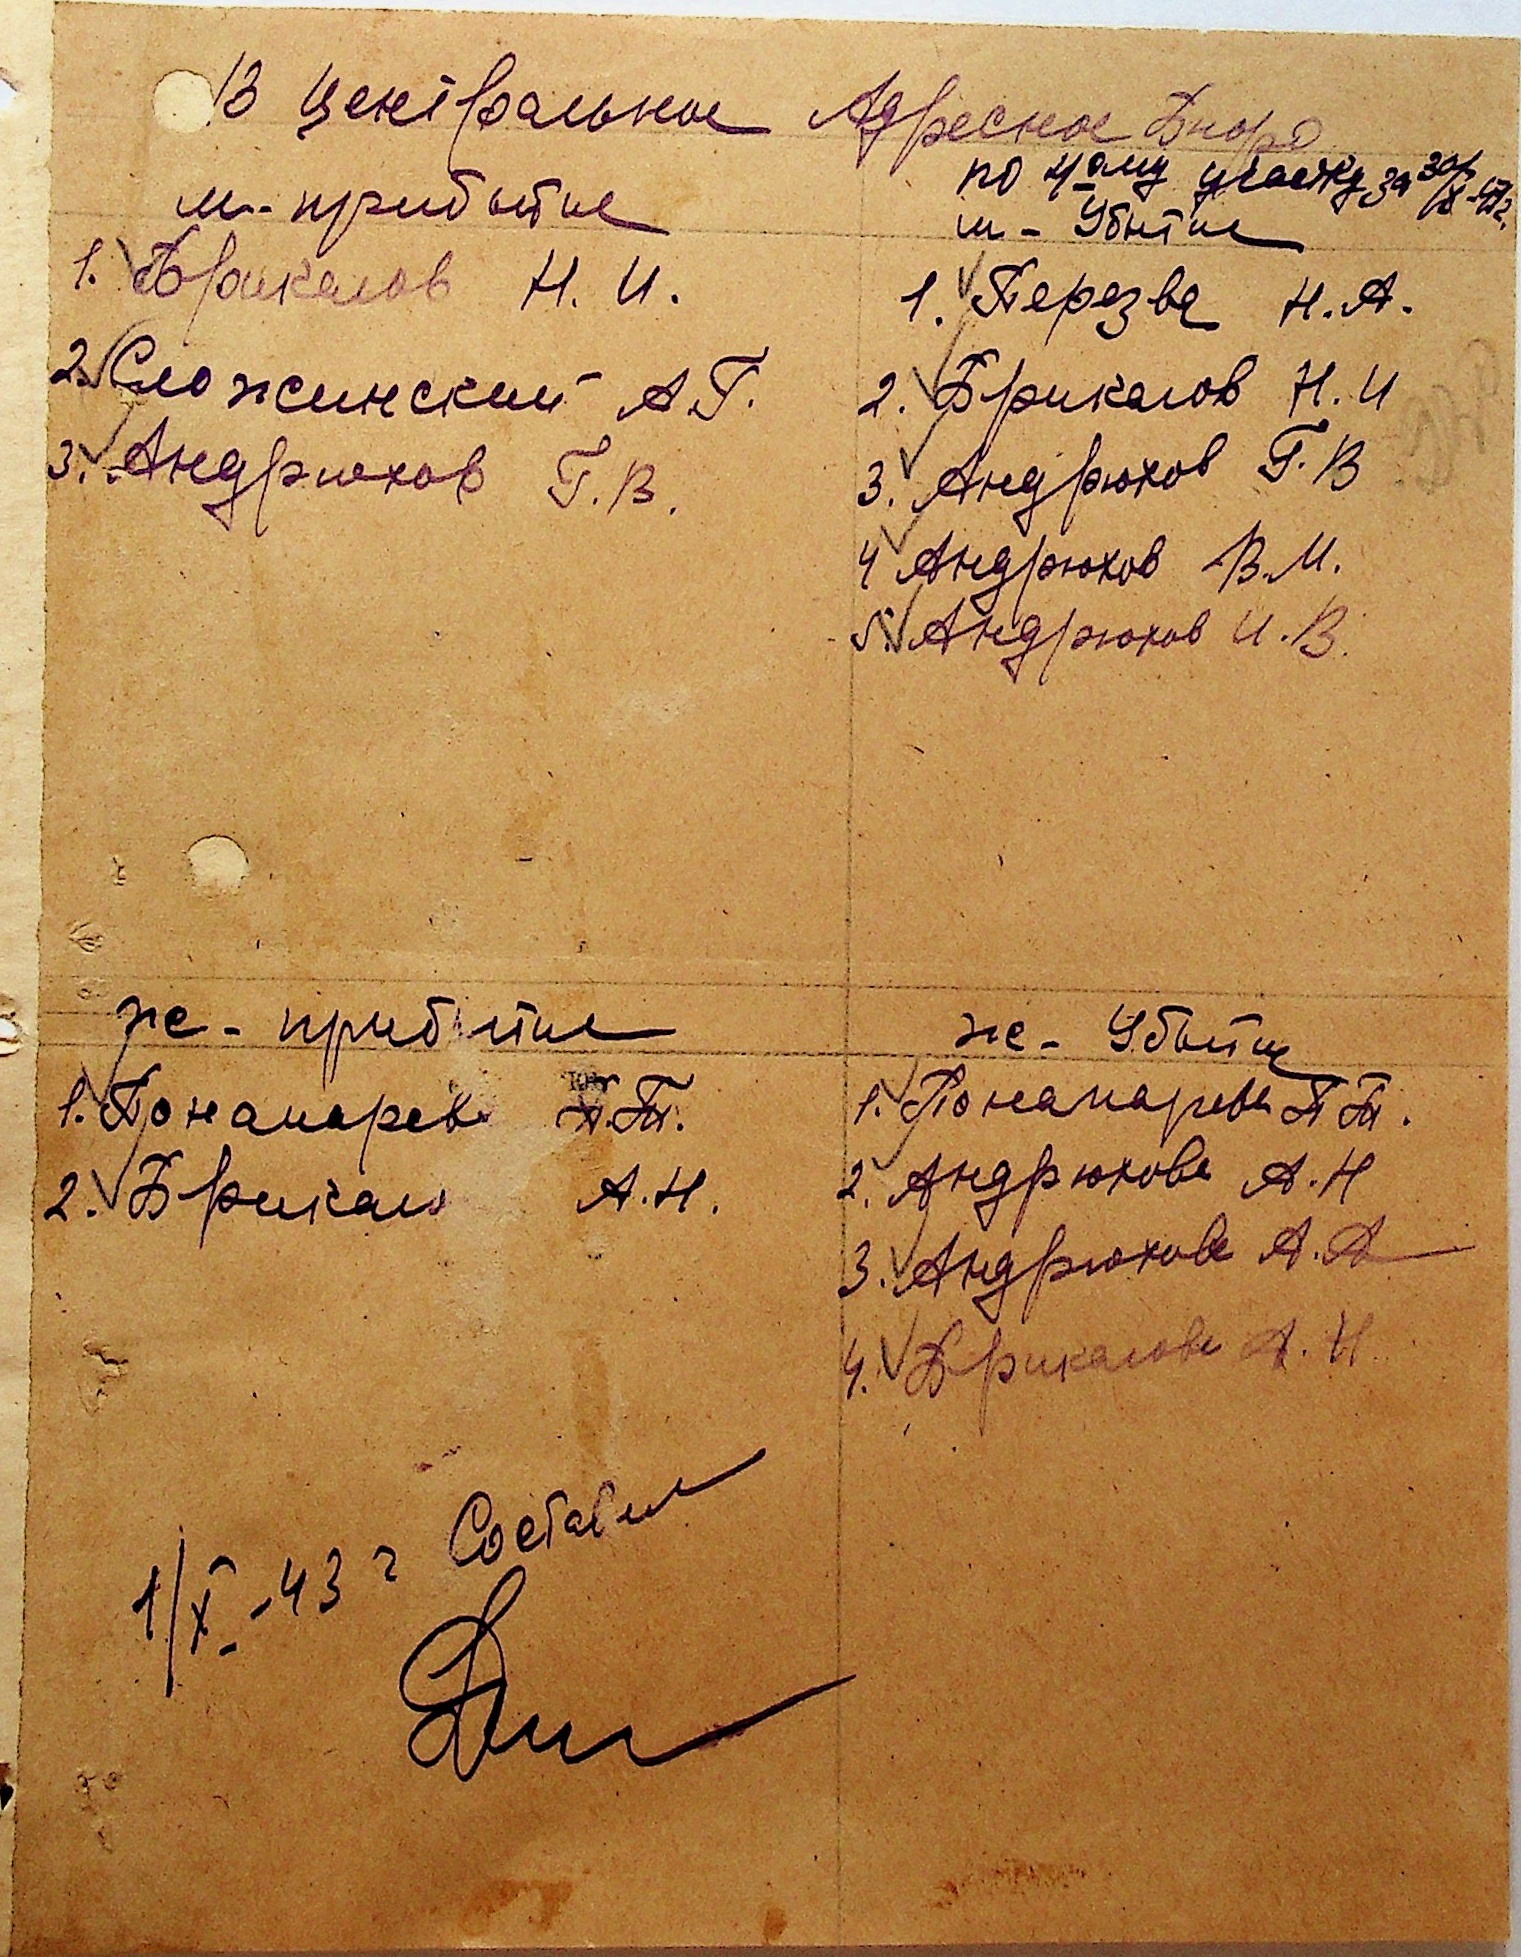 В Центральное Адресное Бюро
по 4-ому участку за 30/IX-43 г.
м - прибытие
1. Брикалов Н. И.
2. Сложинский А.Г.
3. Андрюхов Г. В.
м - Убытие
1. Перезва Н. А.
2. Брикалов Н. И
3. Андрюхов Г. В
4 Андрюхов В. М.
5. Андрюхов И. В.
ж - прибытие
1. Понамарев П.Т.
2. Брикал А. Н.
ж - Убытие
1. Понамарева П Т.
2. Андрюхова А. Н
3. Андрюхова А. А
4. Брикалова А. Н
1/X - 43 г Составил